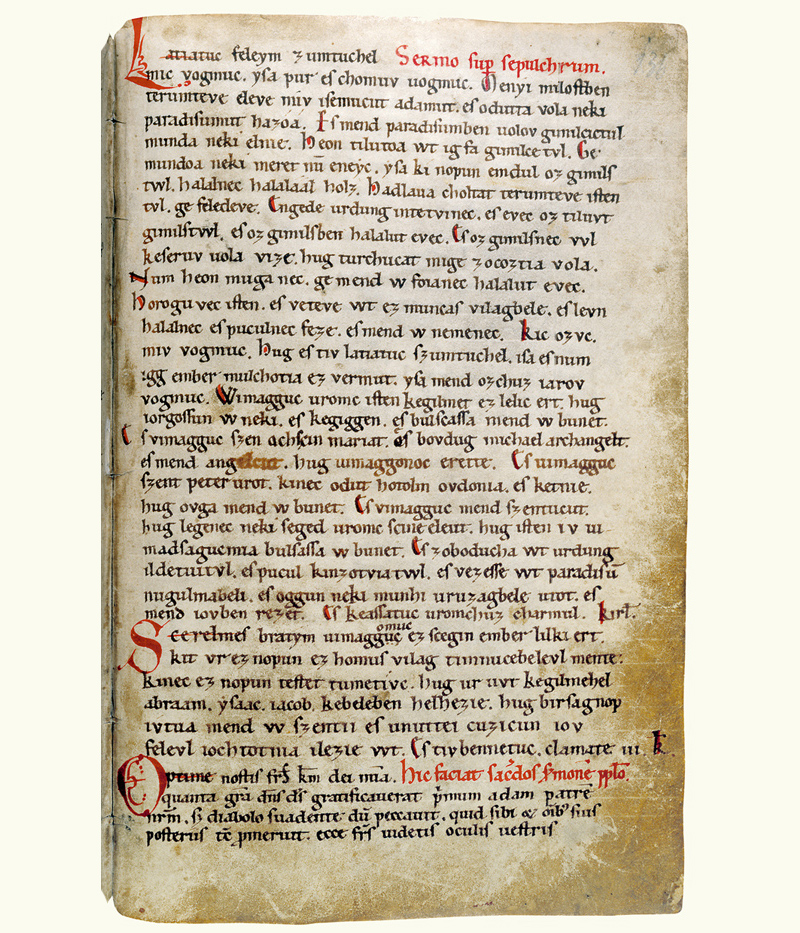 Latiatuc feleym zumtuchel Sermo sup sepulchrum.
mic vogmuc. ysa pur es chomuv uogmuc. Menyi milostben
terumteve eleve miv isemucut adamut. es odutta vola neki
paradisumut hazoa. Es mend paradisumben uolov gimilcictul
munda neki elnie. Heon tilutoa wt ig fa gimilce tvl. Ge
mundoa neki meret nū eneyc. ysa ki nopun emdul oz gimils
twl. halalnec halalaal holz. Hadlaua choltat terumteve isten
tvl. ge feledeve. Engede urdung intetvinec. es evec oz tiluvt
gimilstwl. es oz gimilsben halalut evec. Es oz gimilsnec vvl
keseruv uola vize. hug turchucat mige zocoztia vola.
Num heon muga nec. ge mend w foianec halalut evec.
Horogu vec isten. es veteve wt ez muncas vilagbele. es levn
halalnec es puculnec feze. es mend w nemenec. Kic ozvc.
miv vogmuc. Hug es tiv latiatuv szumtuchel. isa es num
igg ember mulchotia ez vermut. ysa mend ozchuz iarov
vogmuc. Wimagguc uromc isten kegilmet ez lelic ert. hug
iorgossun w neki. es kegiggen. es bulscassa mend w bunet.
Es vimagguc szen achscin mariat. es bovdug michael archangelt.
es mend angelcut. hug uimaggonoc erette. Es uimagguc
szent peter urot. kinec odut hotolm ovdonia. es ketnie.
hug ovga mend w bunet. Es vimagguc mend szentucut.
hug legenec neki seged uromc scine eleut. hug isten iv ui
madsagucmia bulsassa w bunet. Es zoboducha wt urdung
ildetuitvl. es pucul kinzotviatwl. es vezesse wt paradisū
nugulmabeli. es oggun neki munhi uruzagbele utot. es
mend iovben rezet. Es keassatuc uromchuz charmul. kirl.
Scerelmes bratym uimagguc omuc ez scegin ember lilki ert.
kit vr ez nopun ez homus vilag timnucebelevl mente.
kinec ez nopun testet tumetivc. hug ur uvt kegilmehel
abraam. ysaac. iacob. kebeleben helhezie. hug birsagnop
ivtua mend w szentii es unuttei cuzicun iov
felevl iochtotnia ilezie wt. Es tiv bennetuc. clamate iii. k.
Optime nostis frs kmi dei mia. Hic faciat sacdos smone pplo.
quanta gra dns ds gratificauerat pmum adam patre
nrm. s; diabolo suadente du peccauit. quid sibi & oib; suis
posteris te pmeruit. ecce frs uidetis oculis uestris